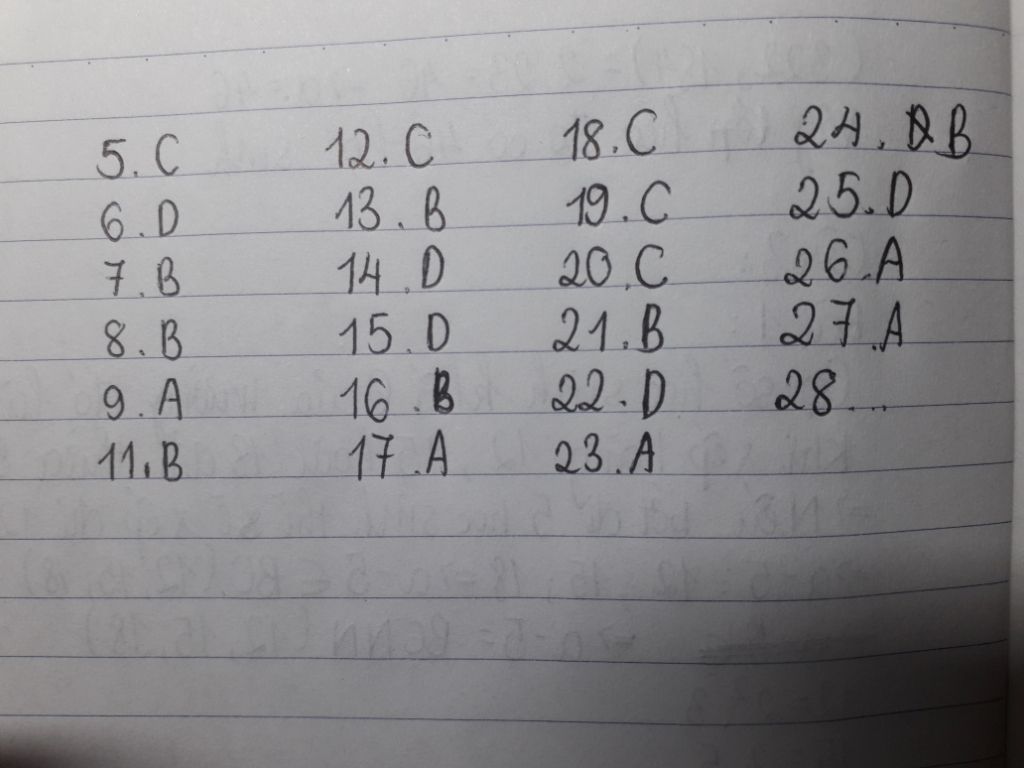 5. C
6. D
7. B
8. B
9. A
11. B
12. C
13. B
14. D
15. D
16. B
17. A
18. C
19. C
20. C
21. B
22. D
23. A
24. B
25. D
26. A
27. A
28...